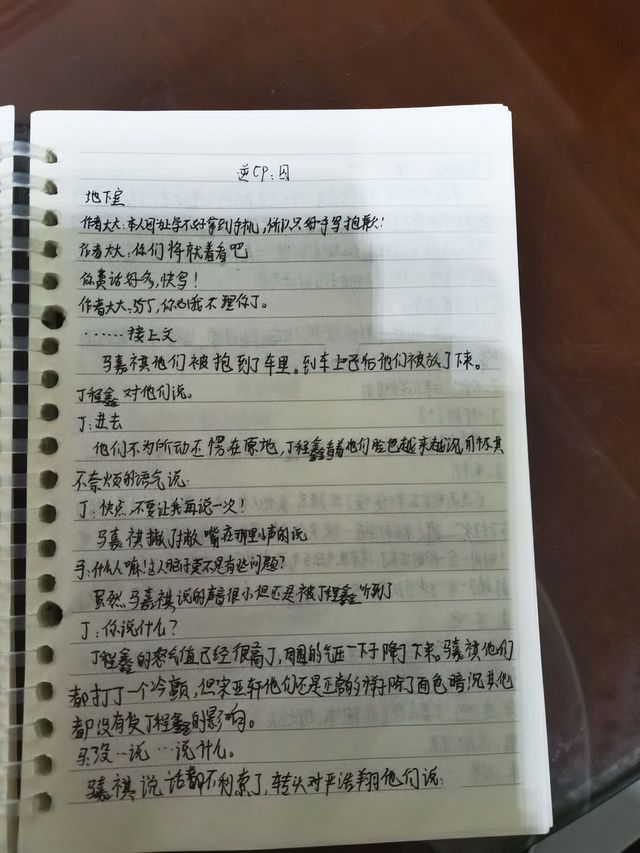 逆CP:囚
地下室
作者大大:本人因为上学不好拿到手机,所以只好手写抱歉!
作者大大:你们将就着看吧
你费话好多,快写!
作者大大:巧了,你心我不理你了。
……接上文
马嘉祺他们被抱到了车里。到车上已后他们被放了下来。
丁程鑫对他们说。
丁:进去
他们不为所动还愣在原地,丁程鑫看着他们脸色越来越沉,用极其
不奈烦的语气说:
丁:快点,不要让我再说一次!
马嘉祺撇了撇嘴在那里小声的说
马:什么人嘛!这人脑子莫不是有些问题?
虽然马嘉祺说的声音很小但还是被丁程鑫听到了
丁:你说什么?
丁程鑫的怒气值已经很高了,周围的气压一下子降了下来。马嘉祺他们
都打了一个冷颤,但宋亚轩他们还是正常的样子除了面色暗沉其他
都没有受丁程鑫的影响。
马:没一说…说什么。
马嘉祺说话都不利索了,转头对严浩翔他们说: